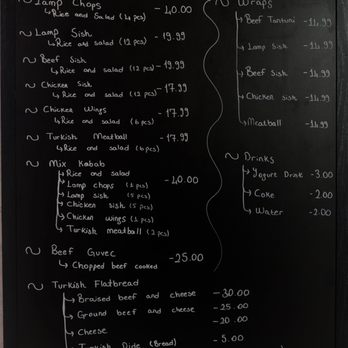 Lamp Chops -40.00
Rice and Salad (4 pcs)
Lamp Sish -19.99
Rice and salad (12 pcs)
Beef Sish -19.99
Rice and salad (12 pcs)
Chicken Sish -17.99
Rice and salad (12 pcs)
Chicken Wings -17.99
Rice and salad (6 pcs)
Turkish Meatball -17.99
Rice and salad (6 pcs)
Mix Kabab -40.00
Rice and salad
Lamp chops (1 pcs)
Lamp sish (5 pcs)
Chicken sish (5 pcs)
Chicken wings (1 pcs)
Turkish meatball (2 pcs)
Beef Guvec -25.00
Chopped beef cooked
Turkish Flatbread
Braised beef and cheese -30.00
Ground beef and cheese -25.00
Cheese -20.00
Turkish Pide (Bread) -5.00
Wraps
Beef Tantuni -14.99
Lamp Sish -14.99
Beef Sish -14.99
Chicken Sish -14.99
Meatball -14.99
Drinks
Yogurt Drink -3.00
Coke -2.00
Water -2.00